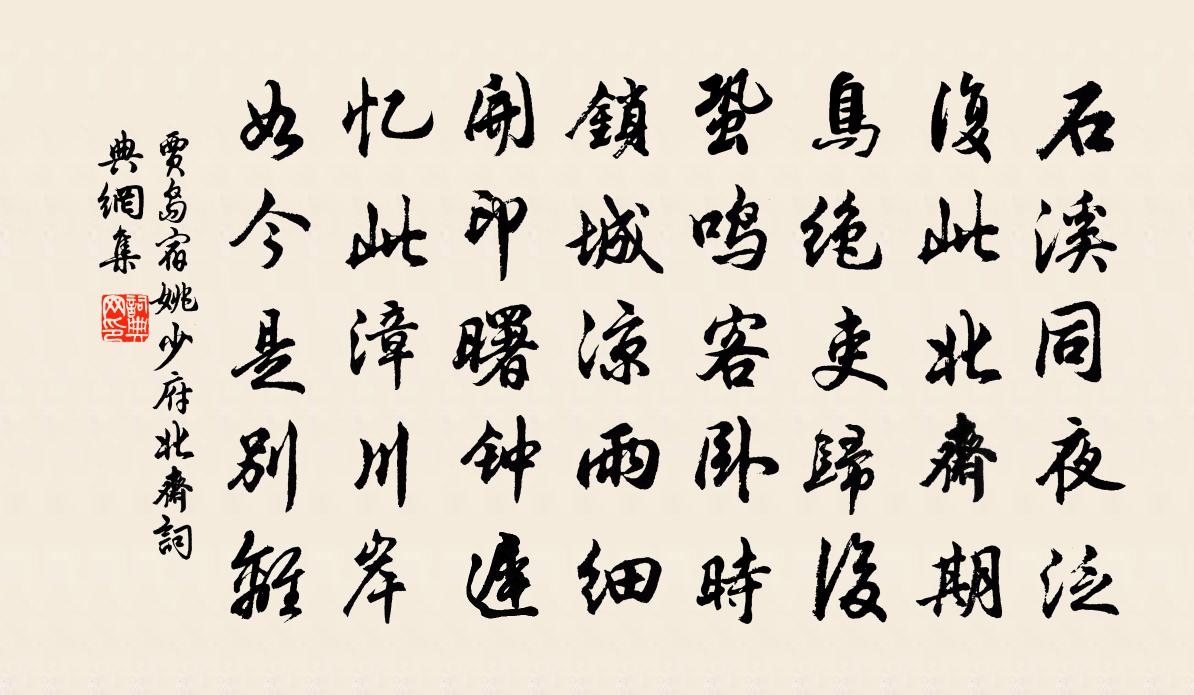 石溪同夜泛
復此北齋期
鳥絶吏歸後
蛩鸣客卧時
鎖城凉雨細
開印曙钟遲
忆此漳川岸
如今是别離
賈島宿姚少府北齋詞
典網集
詞典網印